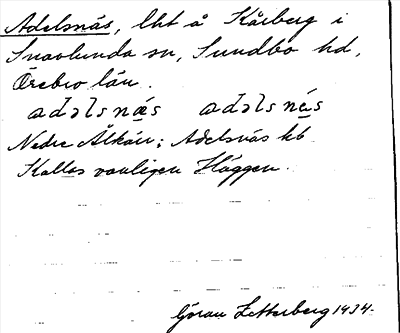 Adelsnäs, lht å Kårberg i
Snavlunda sn, Sundbo hd,
Örebro län.
adəlsnäs adəlsnäs
Nedre Älkärr; Adelsnäs hb
Kallas vanligen Häggen.
Göran Zetterberg 1934.